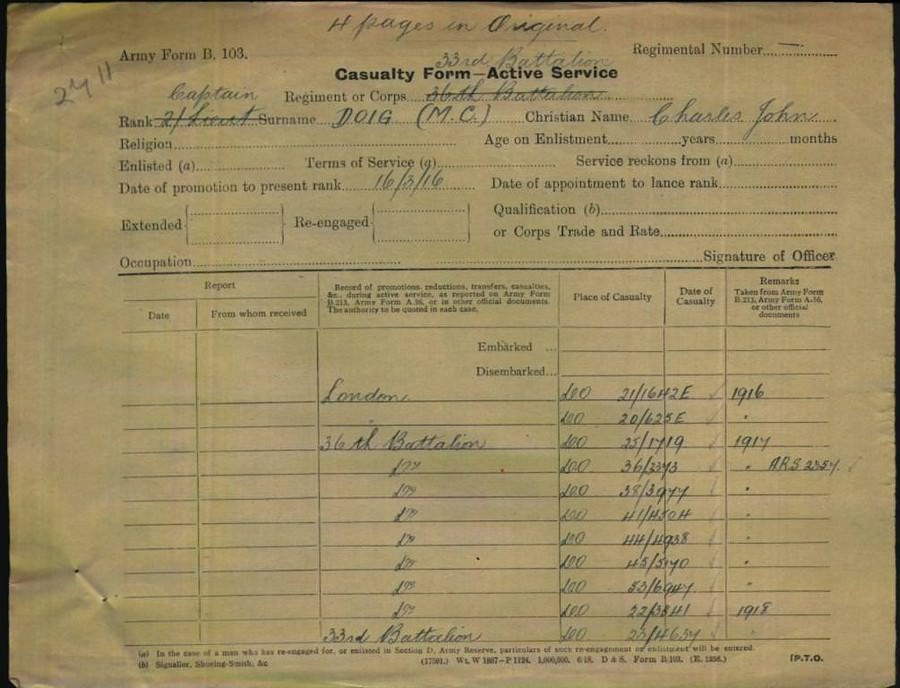 4 pages in Original.
Army Form B. 103.
Regimental Number........ —
2411
33rd Battalion
Casualty Form—Active Service
Captain
Regiment or Corps 36th Battalion
Rank 2/Lieut Surname DOIG (M.C.) Christian Name Charles John
Religion Age on Enlistment years months
Enlisted (a) Terms of Service (a) Service reckons from (a)
Date of promotion to present rank 16/3/16 Date of appointment to lance rank
Extended Re-engaged Qualification (b)
or Corps Trade and Rate
Occupation Signature of Officer
Report
Date
From whom received
Record of promotions, reductions, transfers, casualties,
&c., during active service, as reported on Army Form
B.213, Army Form A.36, or in other official documents.
The authority to be quoted in each case.
Place of Casualty
Date of
Casualty
Remarks
Taken from Army Form
B.213, Army Form A.36,
or other official
documents
Embarked ...
Disembarked...
London LOO 21/1642E 1916
LOO 20/625E "
36th Battalion LOO 25/1719 1917
LOO 36/2373 " ARS 2354
LOO 38/3977 "
LOO 41/4504 "
LOO 44/4938 "
LOO 45/5170 "
LOO 53/6947 "
LOO 22/3841 1918
33rd Battalion LOO 25/4657 "
(a) In the case of a man who has re-engaged for, or enlisted in Section D, Army Reserve, particulars of such re-engagement or enlistment will be entered.
(b) Signaller, Shoeing-Smith, &c (17591.) Wt. W 1887—P 1124. 1,000,000. 6/18. D & S. Form B/103. (E. 1256.) [P.T.O.